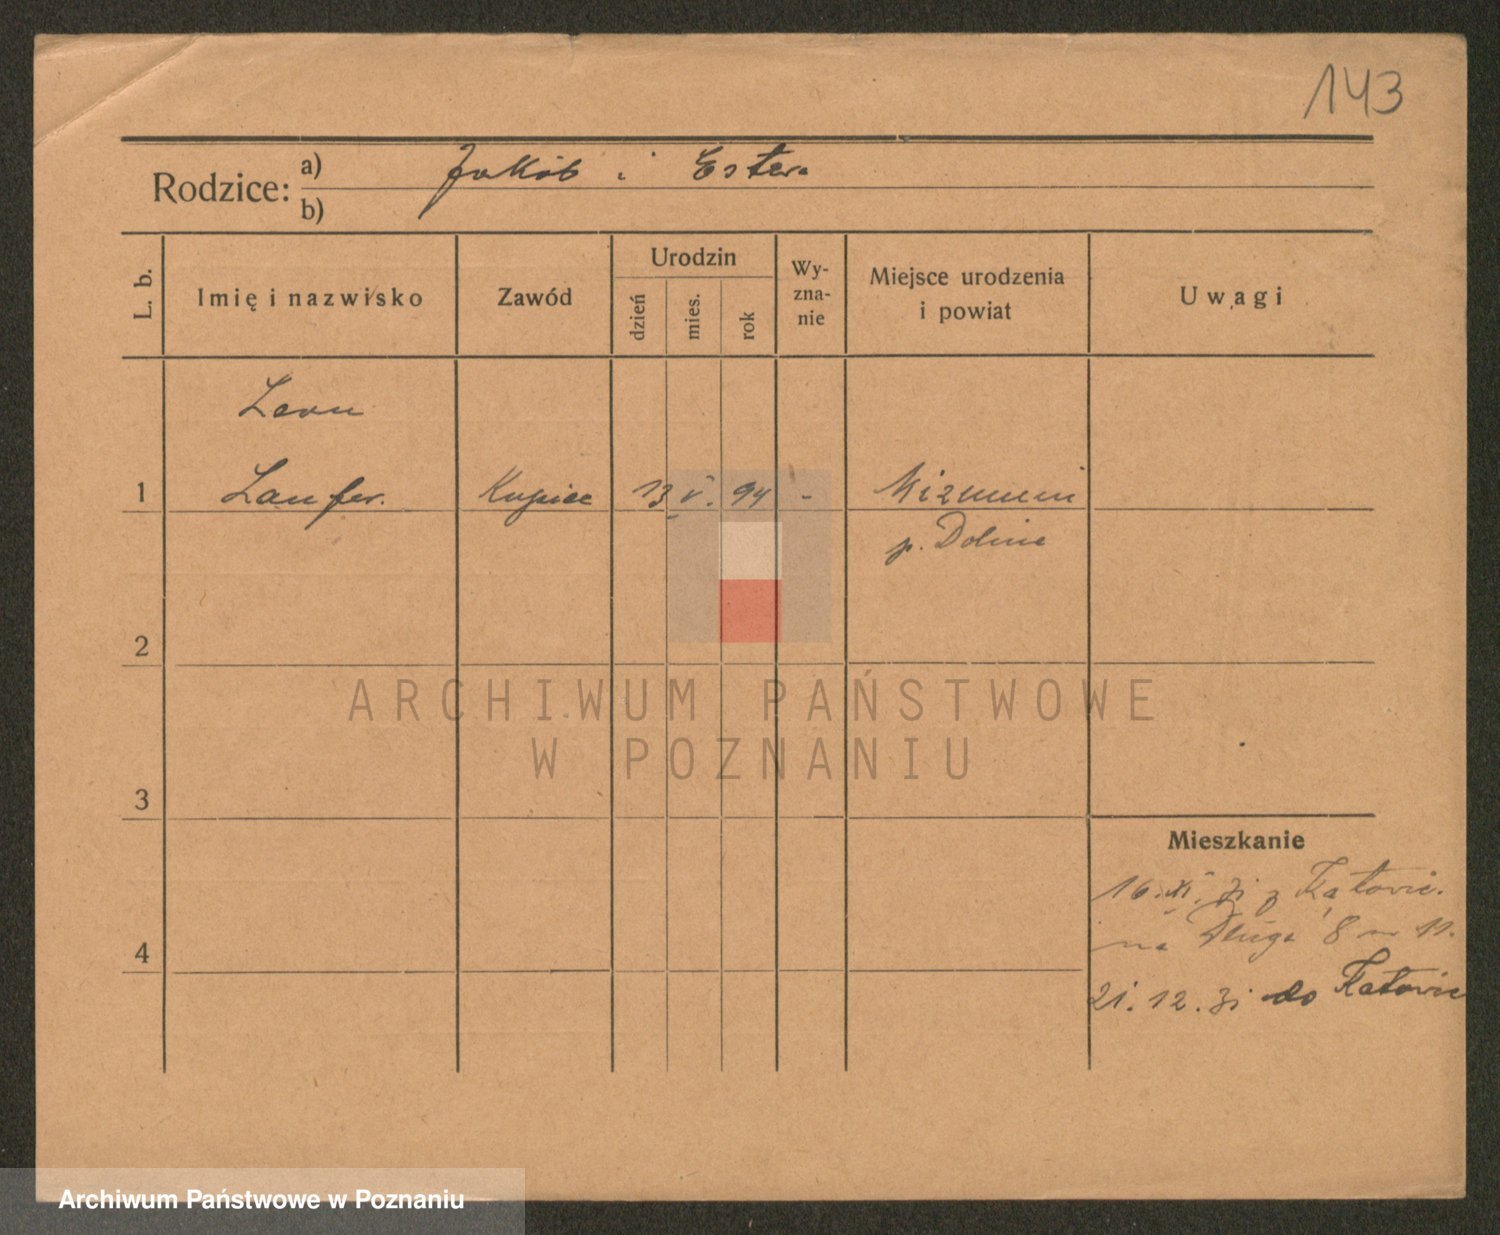 143
Rodzice: a) Jakób i Estera
b)
L. b.
Imię i nazwisko
Zawód
Urodzin
dzień
mies.
rok
Wy-
zna-
nie
Miejsce urodzenia
i powiat
Uwagi
Leon
1 Laufer. Kupiec 13 V. 94 - Mizumni
p. Dolina
2
3
4
ARCHIWUM PAŃSTWOWE
W POZNANIU
Mieszkanie
16. XI. 31 z Katowic.
na Długa 8 m 11.
21. 12. 31 do Katowic
Archiwum Państwowe w Poznaniu